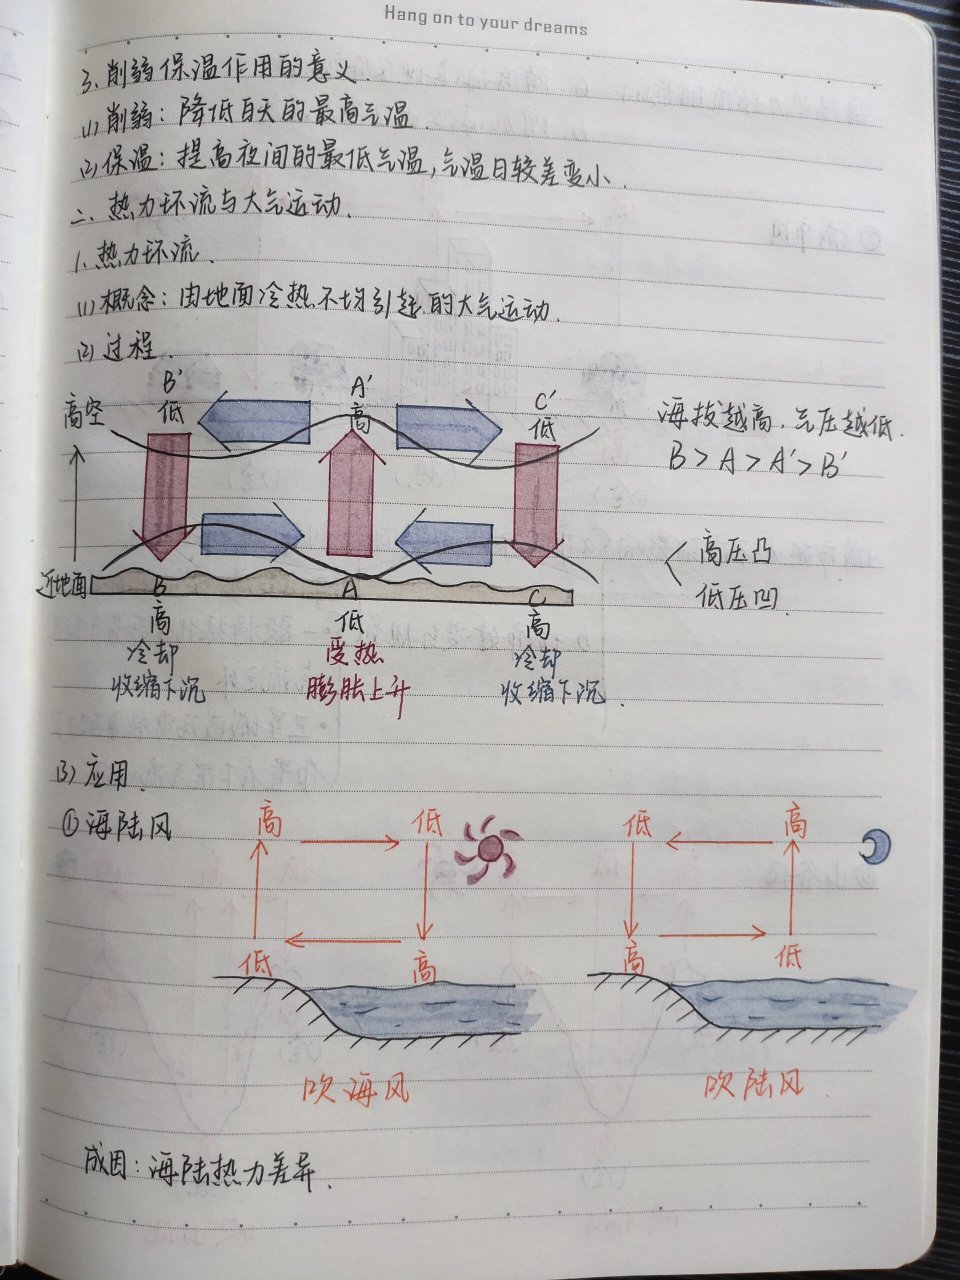 Hang on to your dreams
3、削弱保温作用的意义
(1)削弱：降低白天的最高气温.
(2)保温：提高夜间的最低气温,气温日较差变小.
二、热力环流与大气运动.
1、热力环流.
(1)概念：由地面冷热不均引起的大气运动.
(2)过程.
高空
B' A' C'
低 高 低
海拔越高,气压越低.
B>A>A'>B'
高压凸
低压凹
近地面
B A C
高 低 高
冷却 受热 冷却
收缩下沉 膨胀上升 收缩下沉.
(3)应用.
①海陆风
高 低 低 高
低 高 高 低
吹海风 吹陆风.
成因：海陆热力差异.